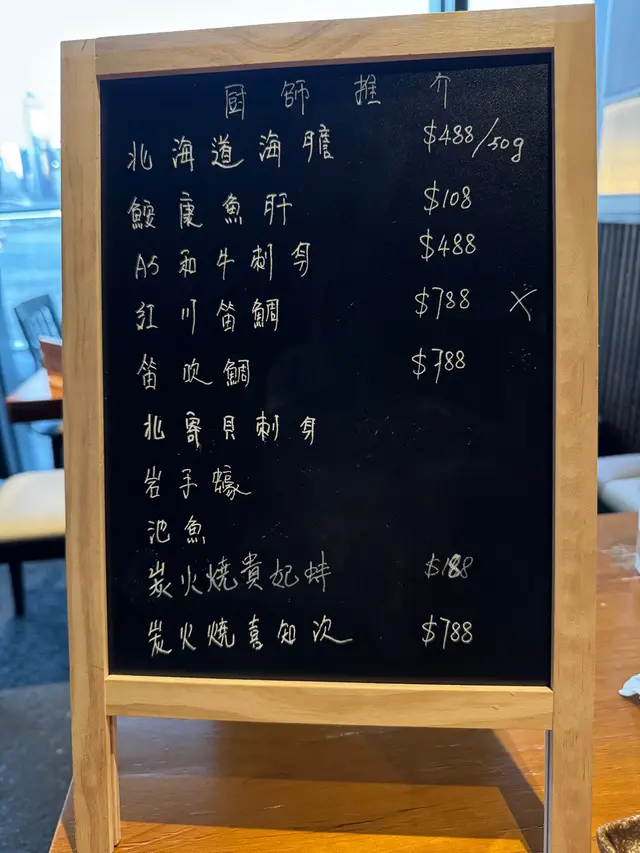 厨師推介
北海道海膽 $488/50g
鮟康魚肝 $108
A5和牛刺身 $488
紅川笛鯛 $788 X
笛吹鯛 $788
北寄貝刺身
岩手蠔
池魚
炭火燒貴妃蚌 $188
炭火燒喜知次 $788